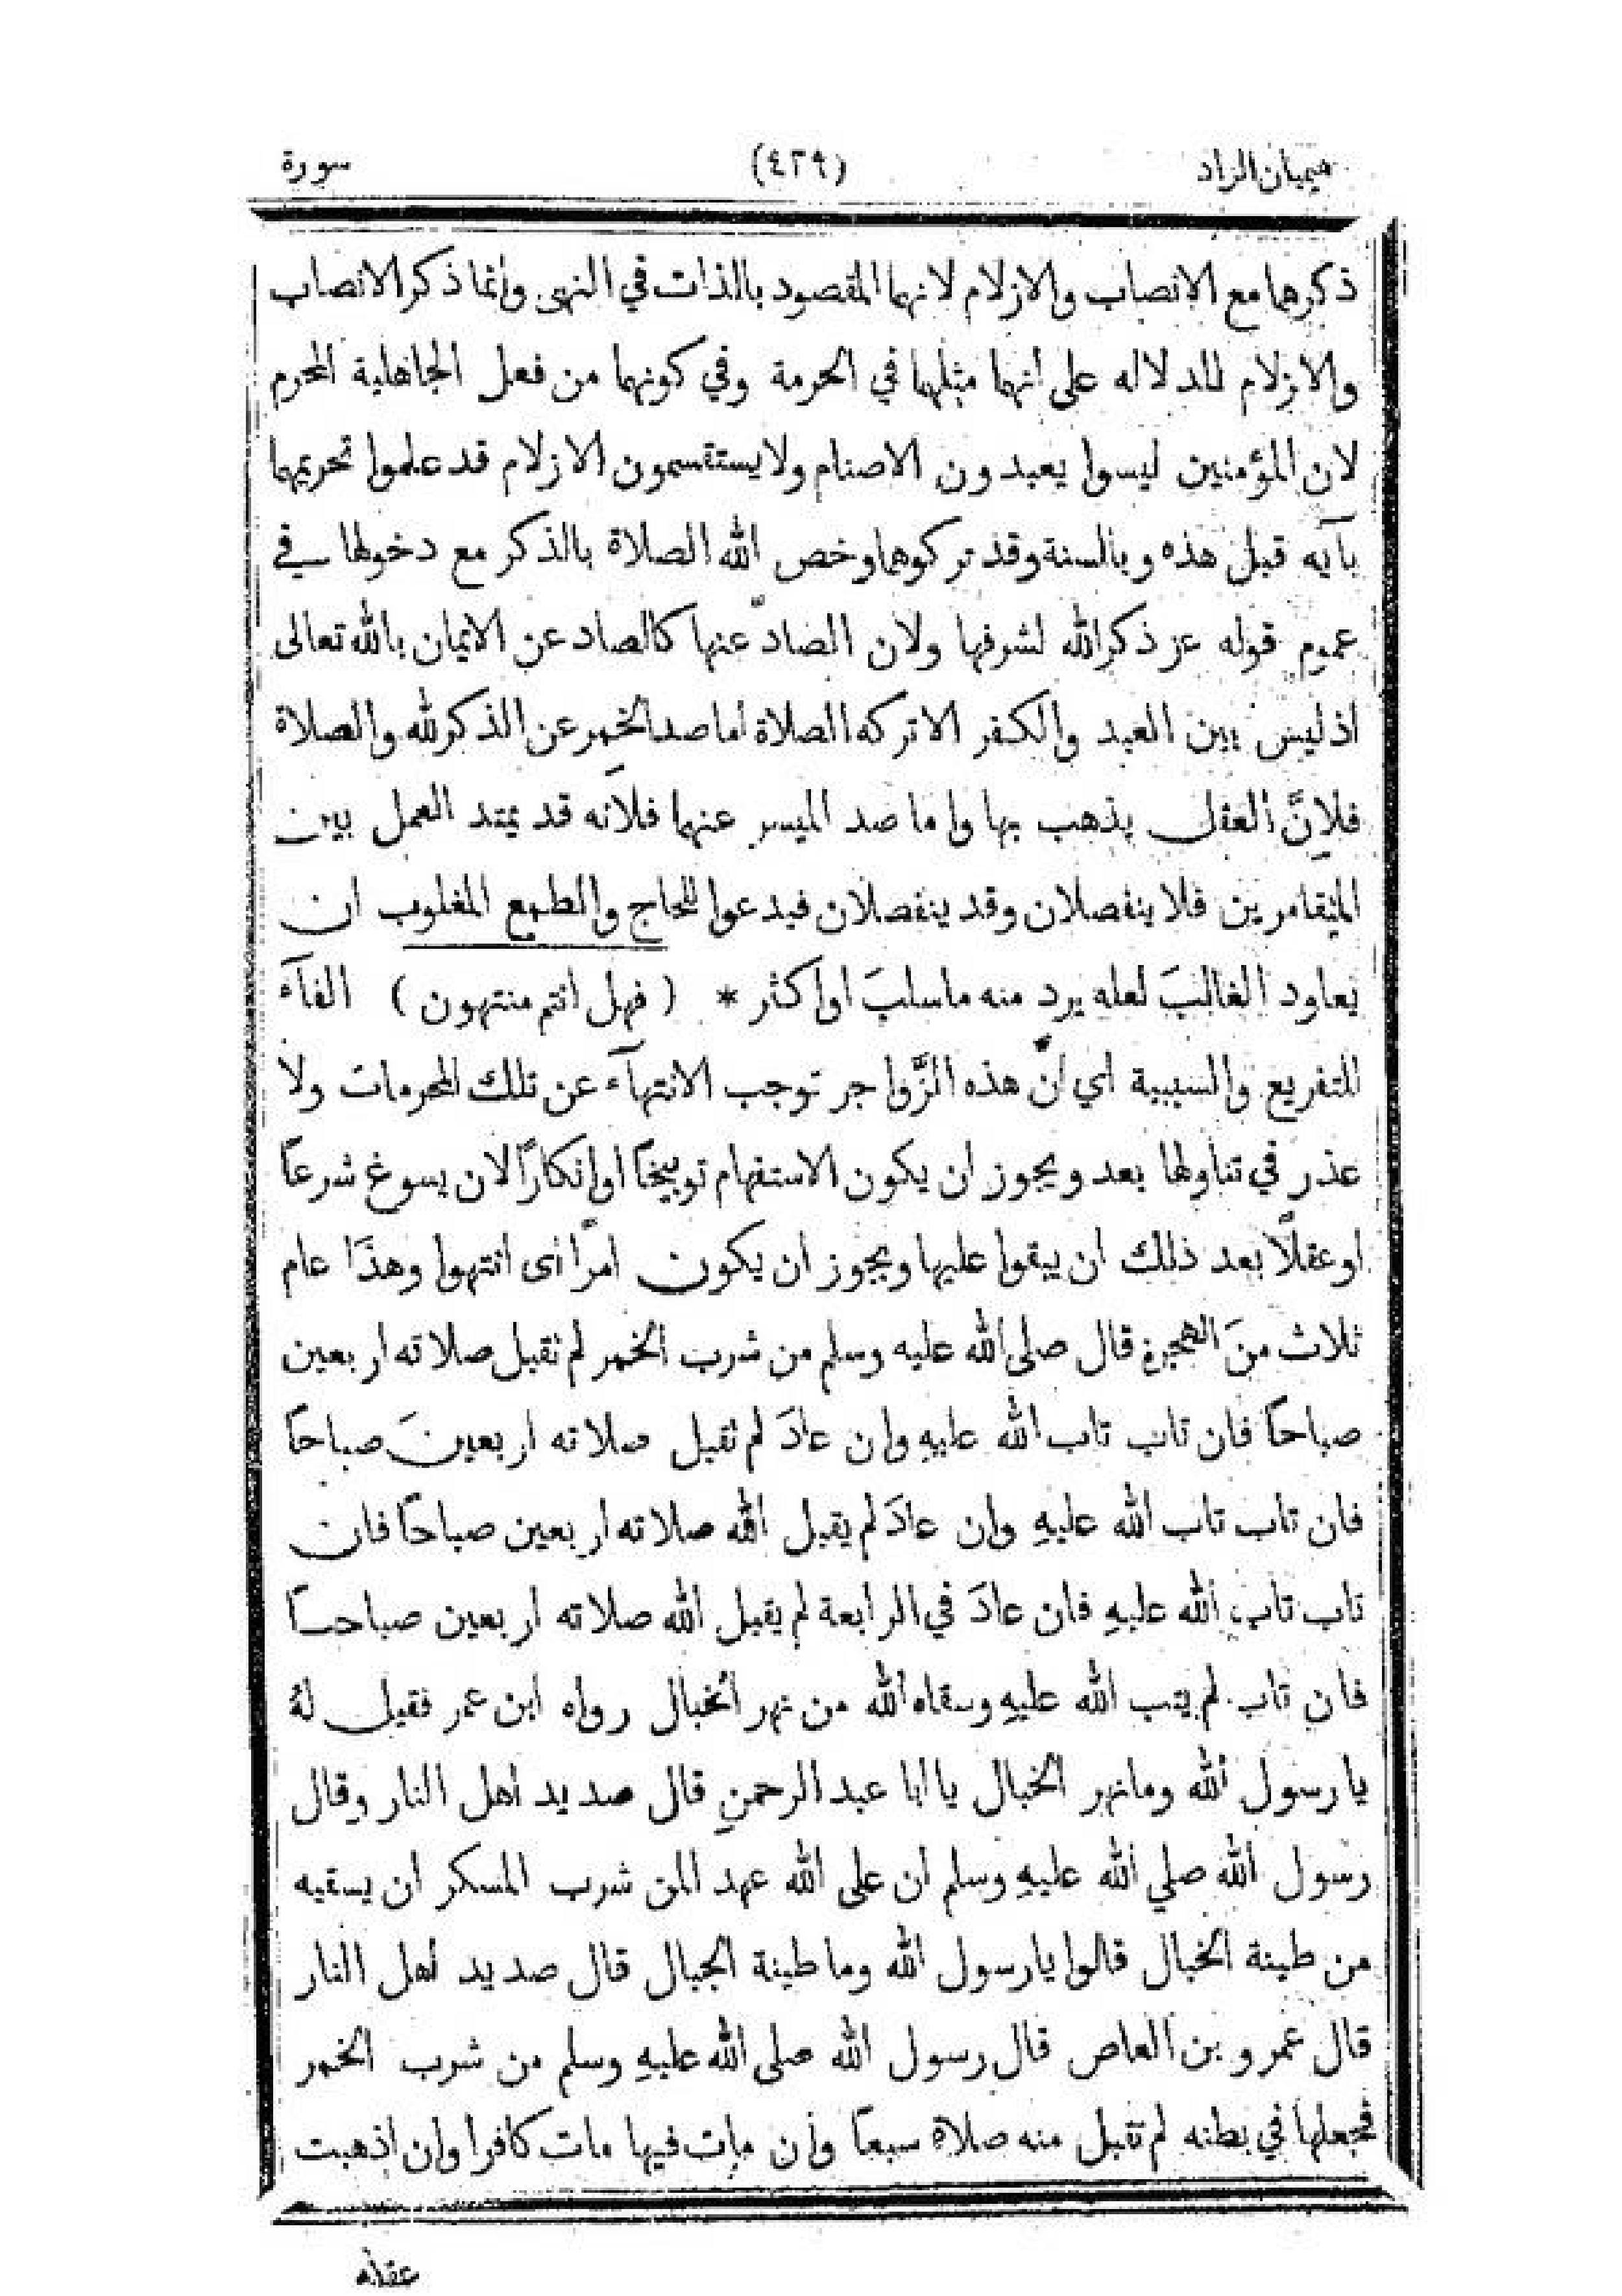 هيميان الزاد (٤٢٩) سورة
ذكرهما مع الانصاب والازلام لانهما المقصود بالذات في النهى وانما ذكر الانصاب
والازلام للدلاله على انهما مثلهما في الحرمة وفي كونهما من فعل الجاهلية المحرم
لان المؤمنين ليسوا يعبدون الاصنام ولا يستقسمون الازلام قد علموا تحريمهما
بآيه قبل هذه وبالسنة وقد تركوهما وخص الله الصلاة بالذكر مع دخولها في
عموم قوله عز ذكر الله لشرفها ولان الصادّ عنها كالصاد عن الايمان بالله تعالى
اذ ليس بين العبد والكفر الا تركه الصلاة اما صد الخمرِ عن الذكر لله والصلاة
فلاِنَّ العقل يذهب بها واما صد الميسر عنهما فلانه قد يمتد العمل بين
المتقامرين فلا ينفصلان وقد ينفصلان فيدعوا للحاج والطمع المغلوب ان
يعاود الغالبَ لعله يرد منه ما سلبَ او اكثر * ( فهل انتم منتهون ) الفآء
للتفريع والسببية اي انّ هذه الزَّواجر توجب الانتهآء عن تلك المحرمات ولا
عذر في تناولها بعد ويجوز ان يكون الاستفهام توبيخاً او انكارًا لان يسوغ شرعاً
او عقلًا بعد ذلك ان يبقوا عليها ويجوز ان يكون امرًا اى انتهوا وهذَا عام
ثلاث منَ الهجرةِ قال صلى الله عليه وسلم من شرب الخمر لم تقبل صلاته اربعين
صباحاً فان تاب تاب الله عليهِ وان عادَ لم تقبل صلاته اربعينَ صباحاً
فان تاب تاب الله عليهِ وان عادَ لم يقبل الله صلاته اربعين صباحاً فان
تاب تاب الله عليهِ فان عادَ في الرابعة لم يقبل الله صلاته اربعين صباحاً
فان تاب لم يتب الله عليهِ وسقاه الله من نهر الخبال رواه ابن عمر فقيل لهُ
يا رسول الله وما نهر الخبال يا ابا عبد الرحمنِ قال صديد اهل النار وقال
رسول الله صلي الله عليهِ وسلم ان على الله عهد المن شرب المسكر ان يسقيه
من طينة الخبال قالوا يا رسول الله وما طينة الجبال قال صديد اهل النار
قال عمرو بن العاص قال رسول الله صلى الله عليهِ وسلم من شرب الخمر
فجعلها في بطنه لم تقبل منه صلاة سبعاً وان مات فيها مات كافرا وان اذهبت
عقله